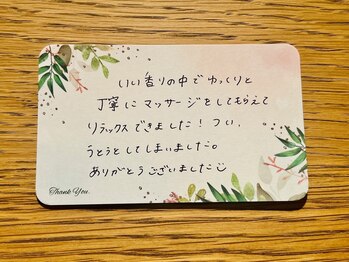 いい香りの中でゆっくりと
丁寧にマッサージをしてもらえて
リラックスできました！つい、
うとうとしてしまいました。
ありがとうございました
Thank You.